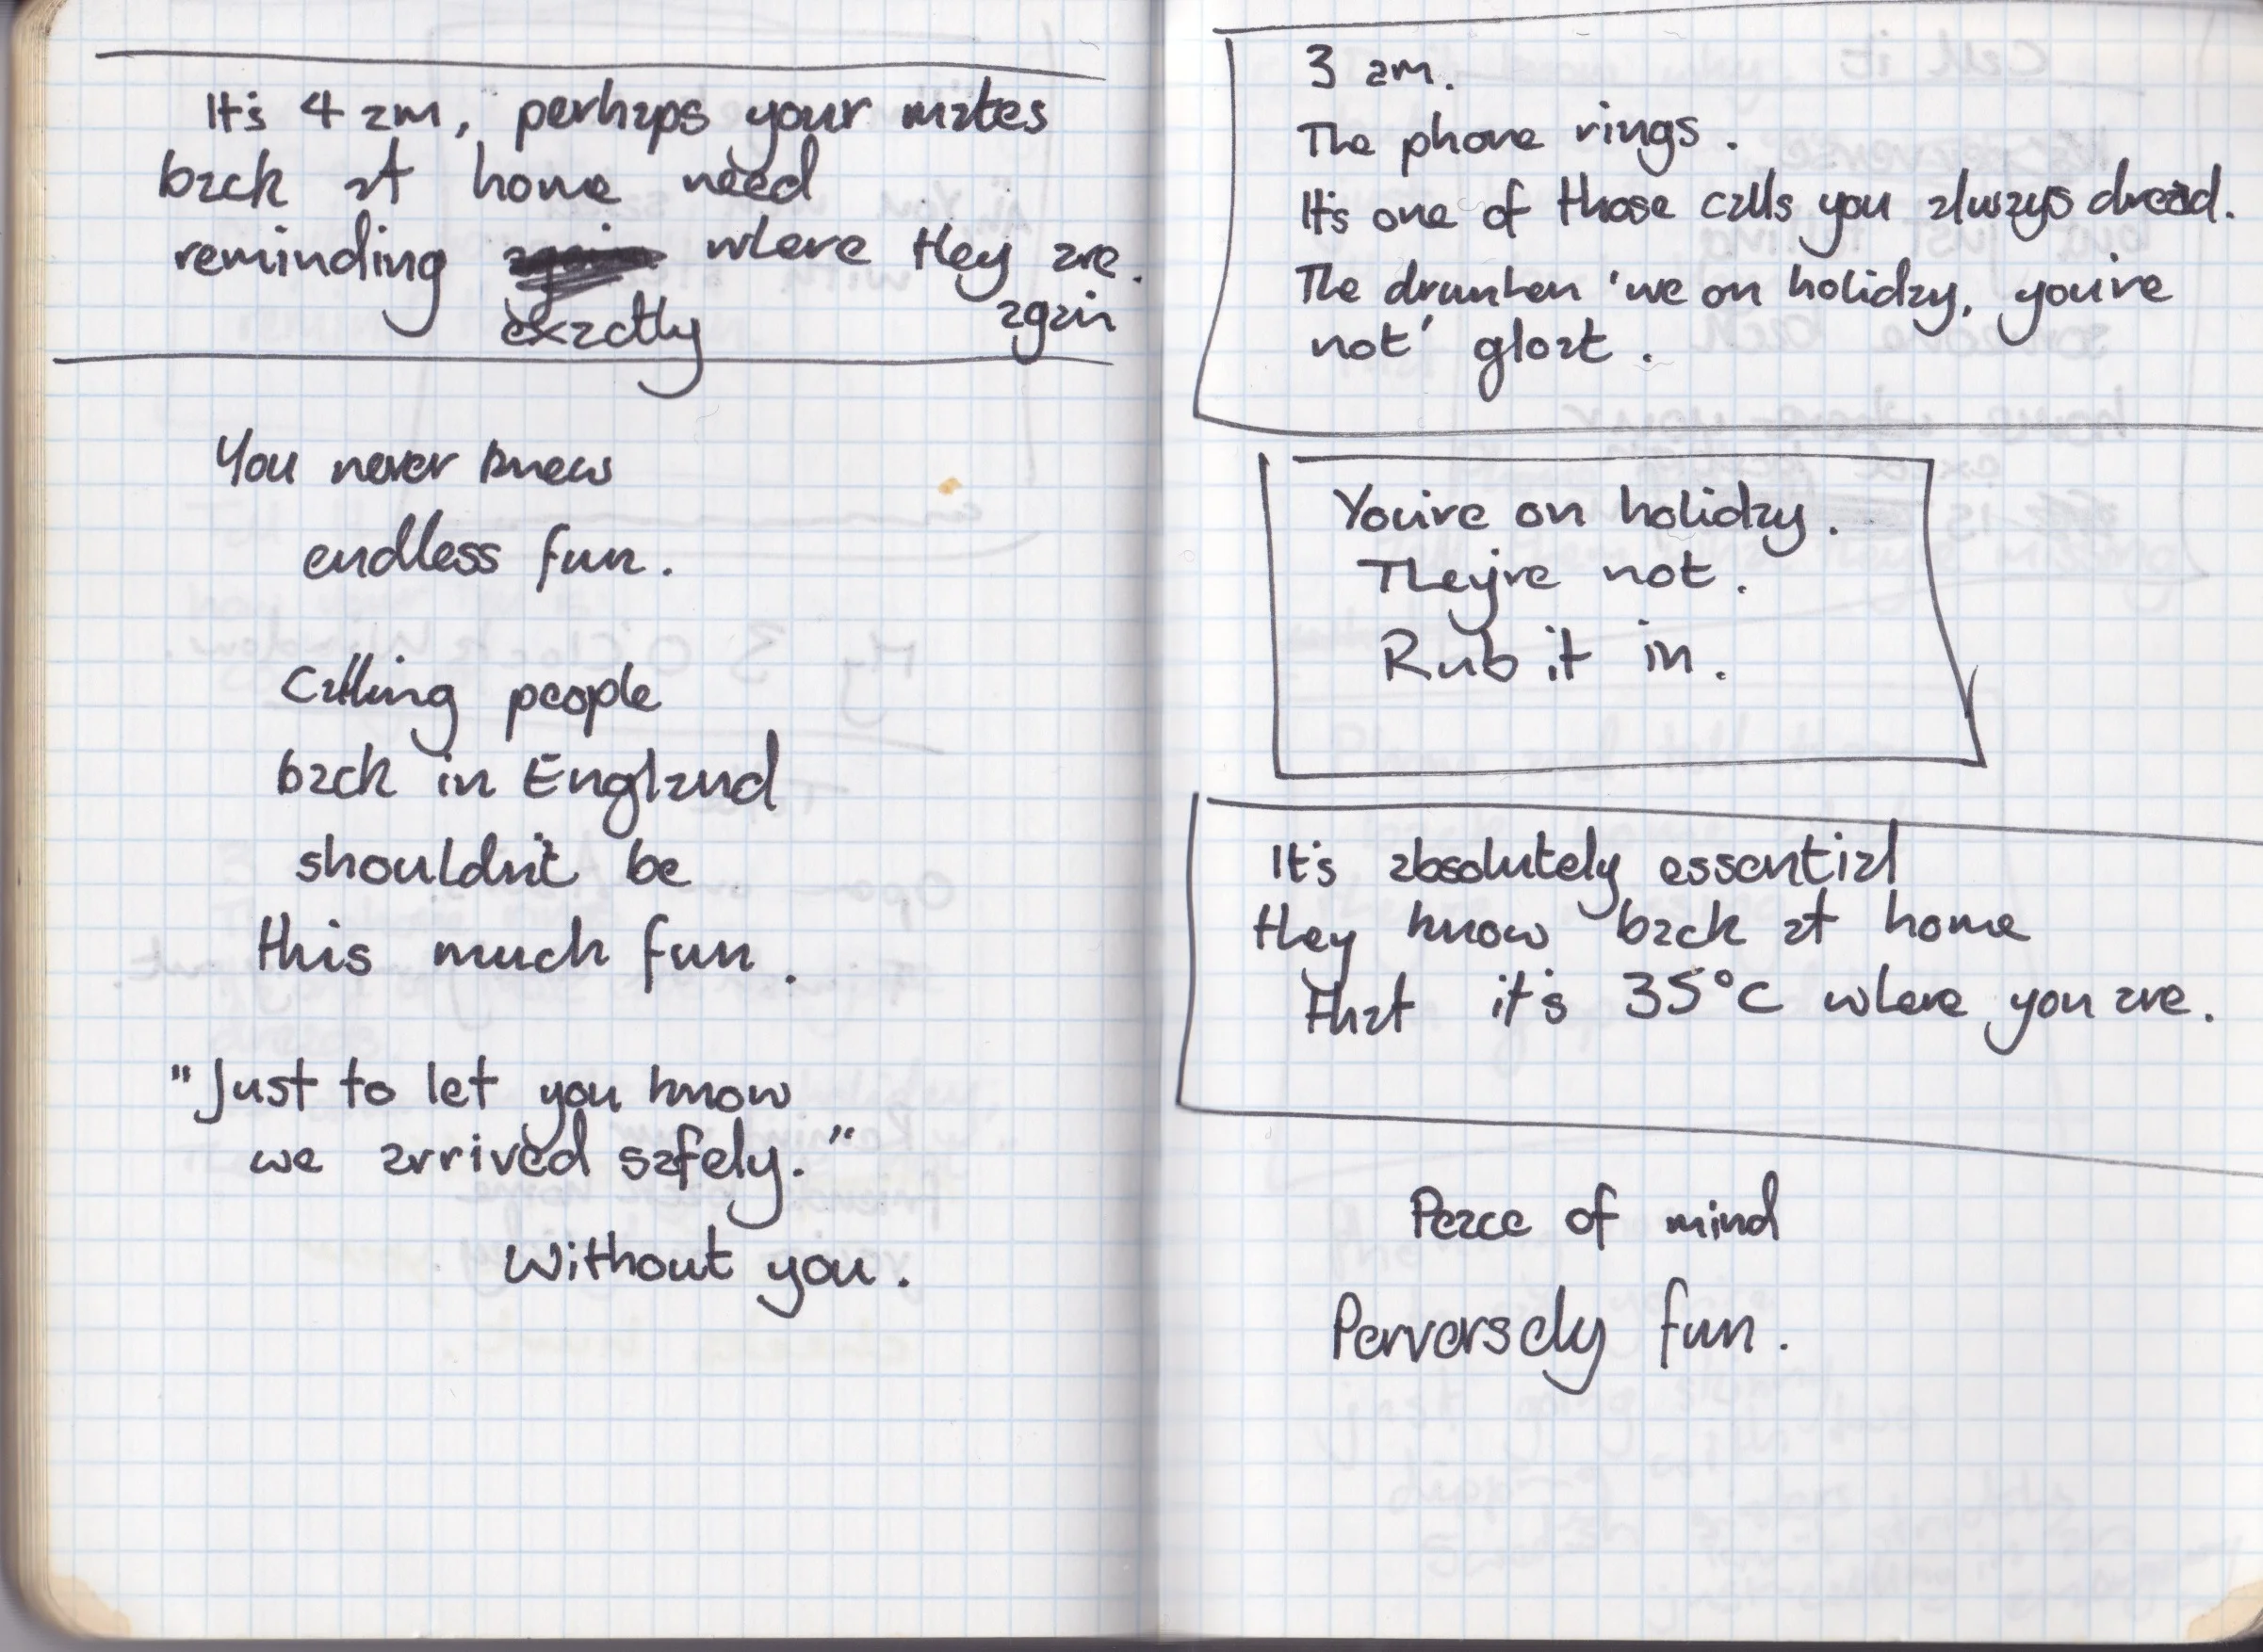 It's 4 am, perhaps your mates
back at home need
reminding where they are.
exactly again
You never knew
endless fun.
Calling people
back in England
shouldn't be
this much fun.
"Just to let you know
we arrived safely."
Without you.
3 am.
The phone rings.
It's one of those calls you always dread.
The drunken 'we on holiday, you're
not' gloat.
You're on holiday.
They're not.
Rub it in.
It's absolutely essential
they know back at home
that it's 35°C where you are.
Peace of mind
Perversely fun.